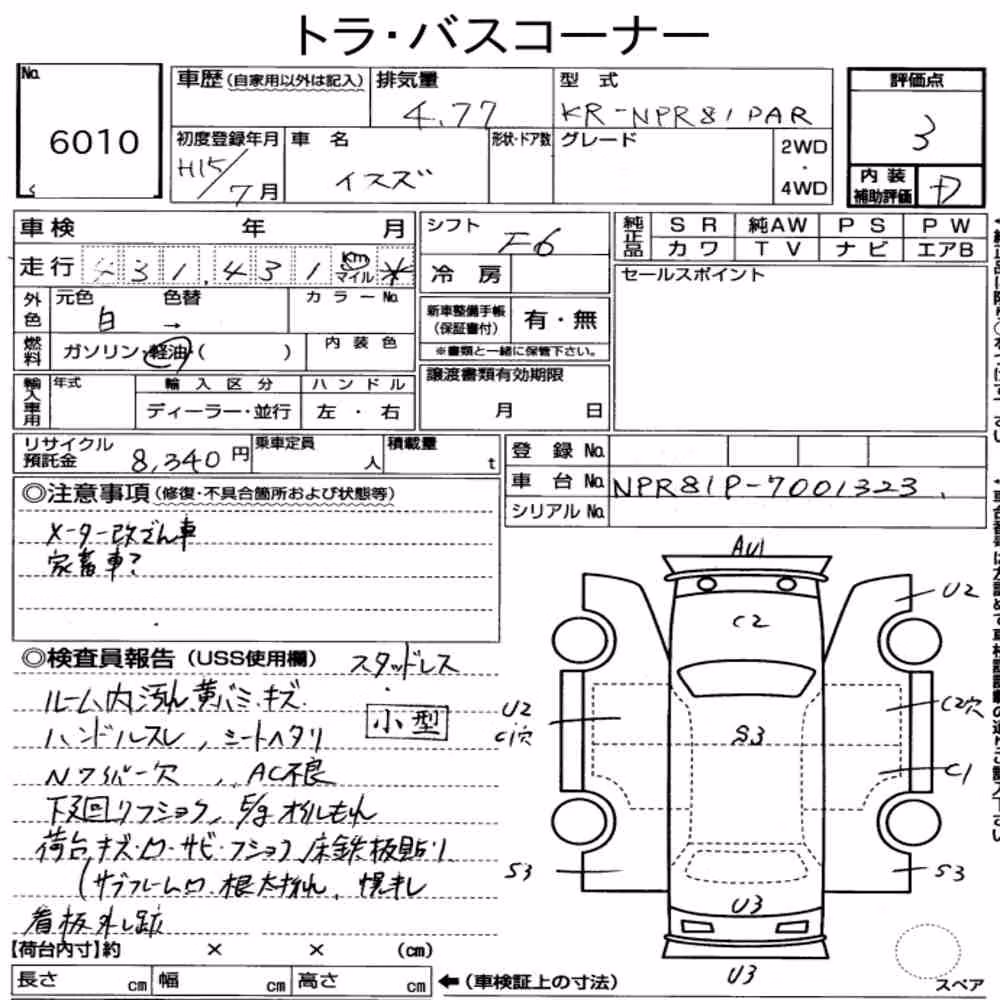 トラ・バスコーナー
No.
6010
S
車歴(自家用以外は記入) 排気量 4.77 型式 KR-NPR81PAR
初度登録年月 H15/7月 車名 イスズ 形状・ドア数 グレード 2WD・4WD
評価点
3
内装補助評価 D
車検 年 月
走行 431,431 km マイル *
外色 元色 白 色替 → カラーNo.
燃料 ガソリン・軽油・( ) 内装色
輸入車用 年式 輸入区分 ハンドル
ディーラー・並行 左・右
シフト F6
冷房
新車整備手帳(保証書付) 有・無
※書類と一緒に保管下さい。
譲渡書類有効期限
月 日
純正品 SR 純AW PS PW
カワ TV ナビ エアB
セールスポイント
リサイクル預託金 8,340円 乗車定員 人 積載量 t
登録No.
車台No. NPR81P-7001323
シリアルNo.
◎注意事項(修復・不具合箇所および状態等)
メーター改ざん車
家畜車?
◎検査員報告(USS使用欄) スタッドレス
ルーム内汚れ、黄バミ・キズ
小型
ハンドルスレ、シートヘタリ
Nワイパー欠、AC不良
下廻リフショク、E/gオイルもれ
荷台キズ・凹・サビ・フショク、床鉄板貼り
(サブフレーム凹、根太折れ、
看板外し跡
【荷台内寸】約 × × (cm)
長さ cm 幅 cm 高さ cm ←(車検証上の寸法)
AU1
U2
C2
U2
C1穴
C2穴
S3
C1
S3
S3
U3
U3
スペア